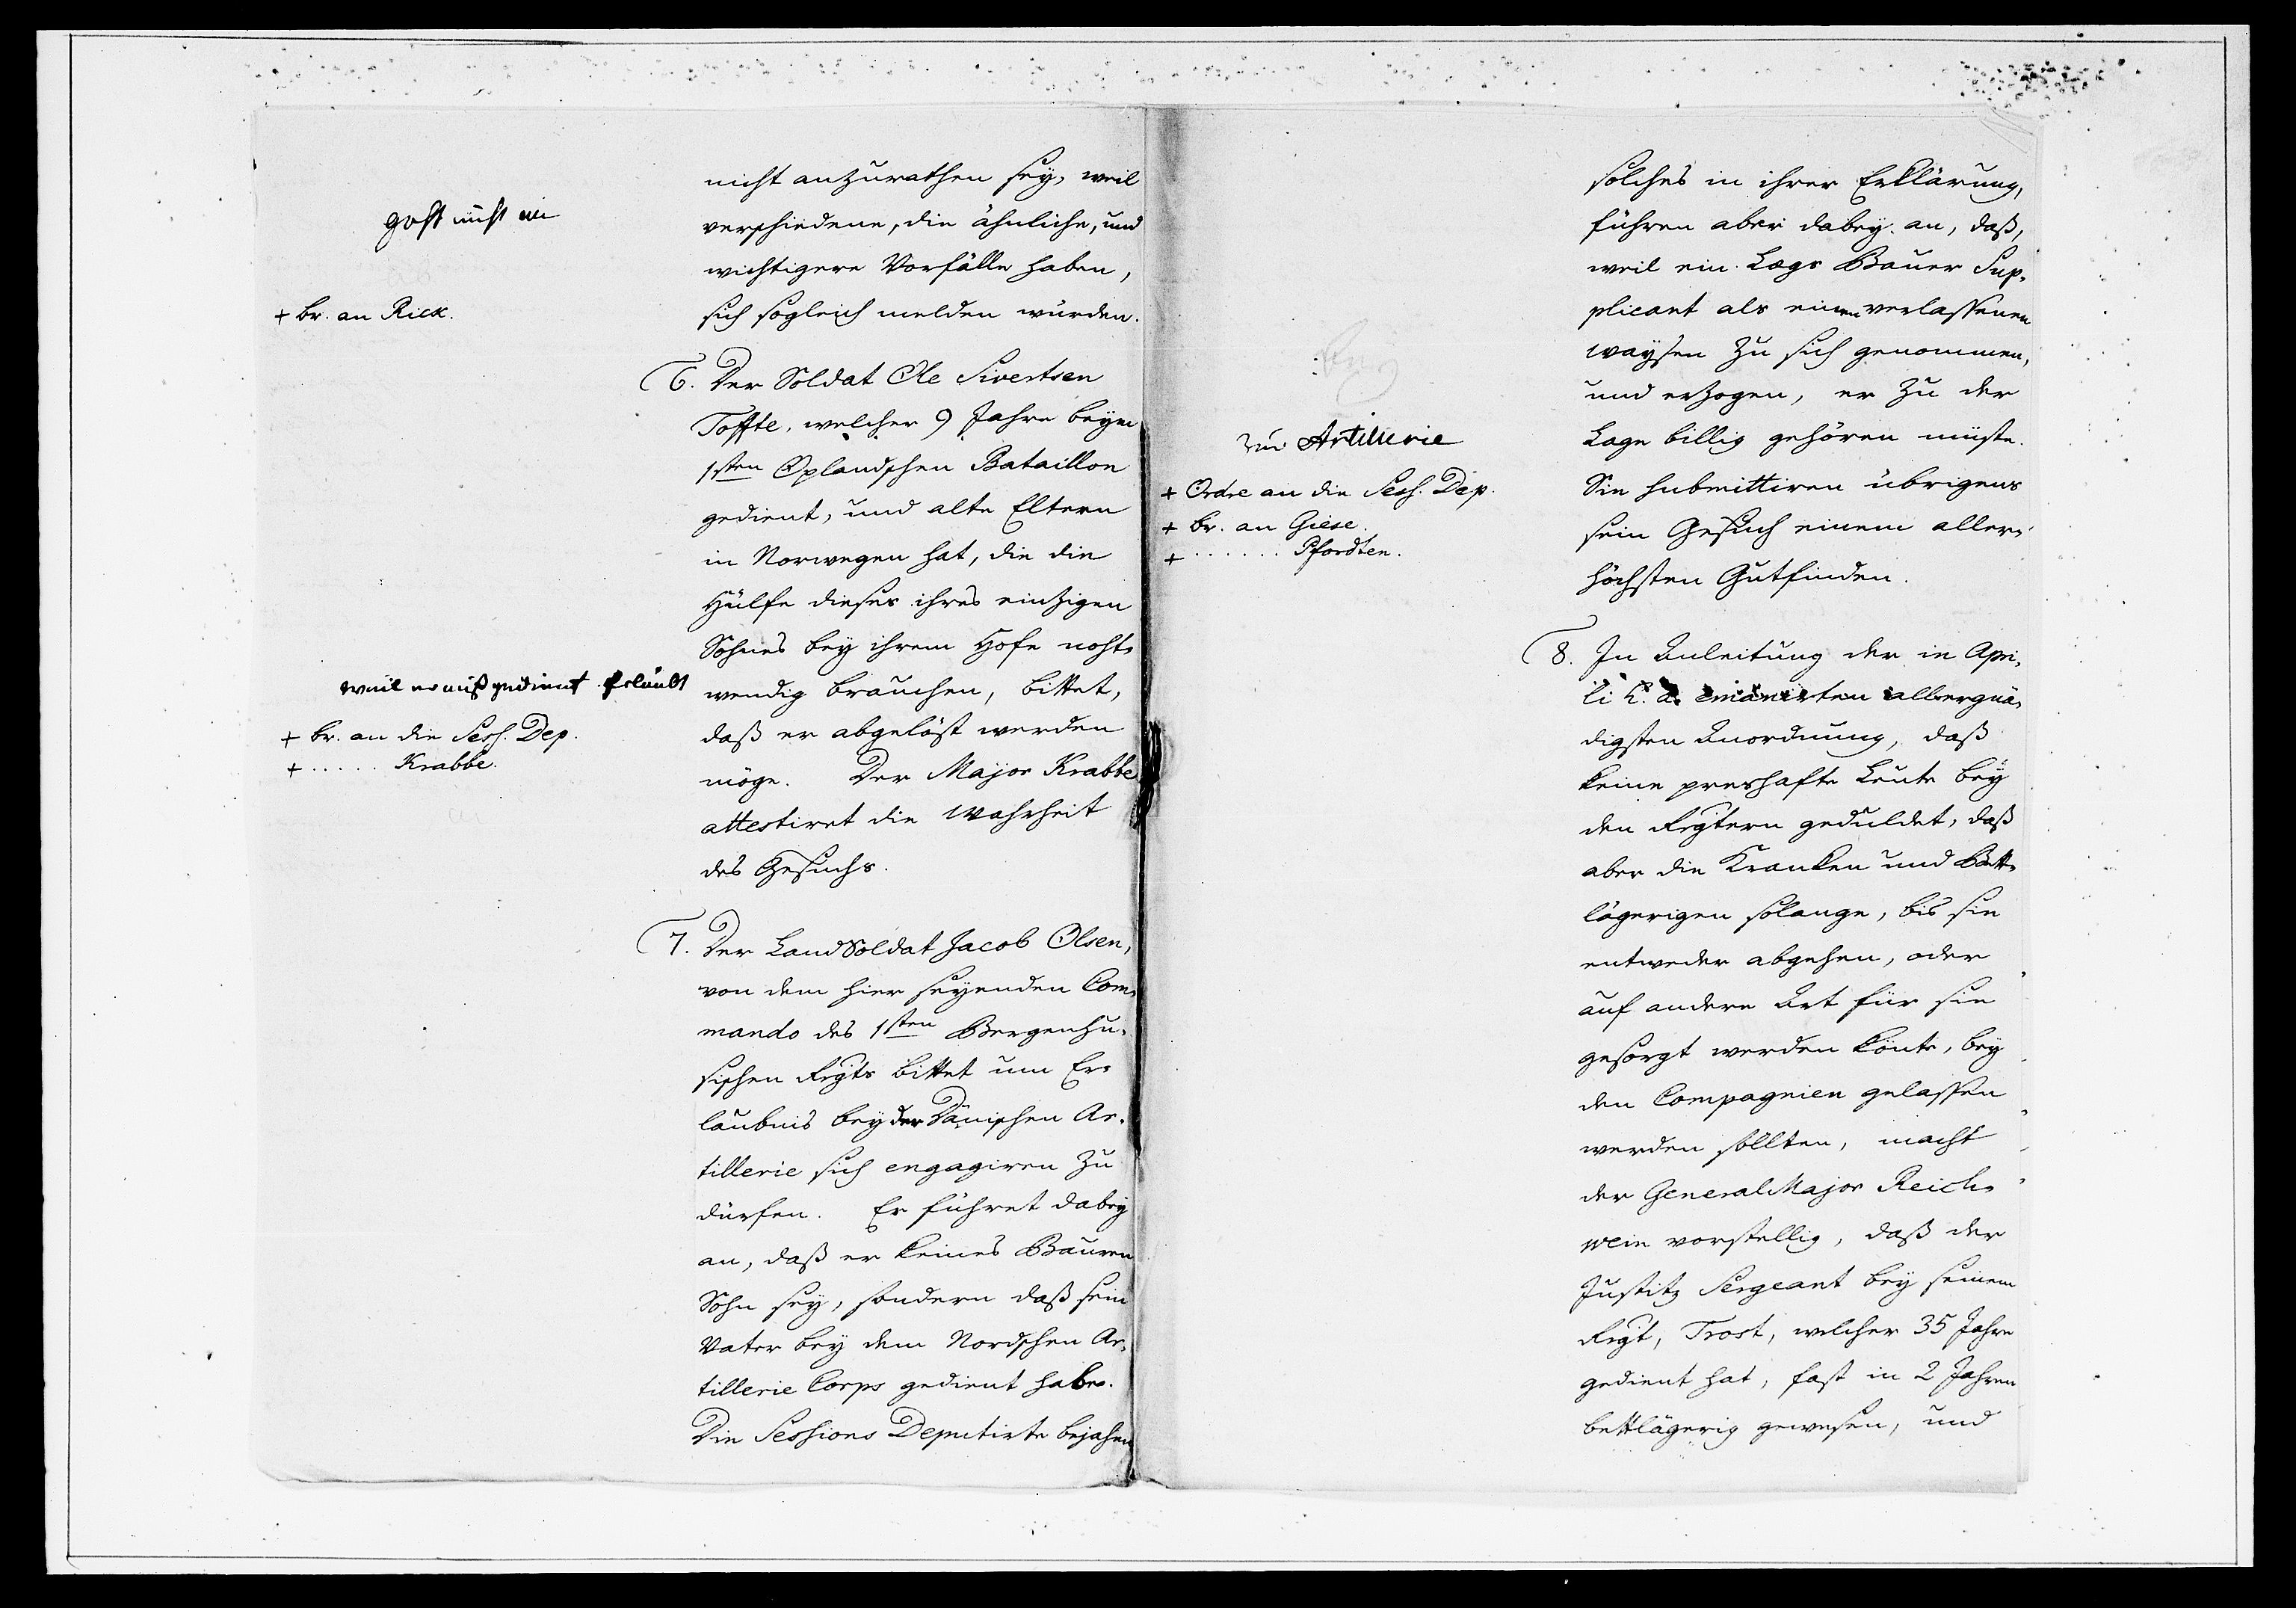 nicht anzurathen sey, weil
verschiedene, die ähnliche, und
wichtigere Vorfälle haben,
sich sogleich melden würden.
geht nicht an
+ Br. an Rick.
6. Der Soldat Ole Sivertsen
Toffte, welcher 9 Jahre beym
1sten Oplandschen Bataillon
gedient, und alte Eltern
in Norwegen hat, die die
Hülfe dieses ihres eintzigen
Sohnes bey ihrem Hofe noht-
wendig brauchen, bittet,
daß er abgelöst werden
möge. Der Major Krabbe
attestiret die Wahrheit
des Gesuchs.
weil er ausgedient erlaubt
+ Br. an die Sess. Dep.
+ ..... Krabbe.
7. Der LandSoldat Jacob Olsen,
von dem hier seyenden Com-
mando des 1sten Bergenhu-
sischen Regts bittet um Er-
laubnis bey der Dänischen Ar-
tillerie sich engagiren zu
dürfen. Er führet dabey
an, daß er keines Bauren
Sohn sey, sondern daß sein
Vater bey dem Nordschen Ar-
tillerie Corps gedient habe.
Die Sessions Deputirte bejahen
zur Artillerie
+ Ordre an die Sess. Dep.
+ Br. an Giese.
+ ...... Pfordten.
solches in ihrer Erklärung,
führen aber dabey an, daß,
weil ein Lags Bauer Sup-
plicant als einen verlassenen
Waysen zu sich genommen,
und erzogen, er zu der
Lage billig gehören müste.
Sie submittiren übrigens
sein Gesuch einem aller-
höchsten Gutfinden.
8. In Anleitung der in Apri-
li h. a. emanirten allergnä-
digsten Anordnung, daß
keine preshafte Leute bey
den Regtern geduldet, daß
aber die Kranken und Bett-
lägerigen solange, bis sie
entweder abgehen, oder
auf andere Art für sie
gesorgt werden könte, bey
den Compagnien gelassen
werden sollten, macht
der GeneralMajor Reich-
wein vorstellig, daß der
Justitz Sergeant bey seinem
Regt, Trost, welcher 35 Jahre
gedient hat, fast in 2 Jahren
bettlägerig gewesen, und